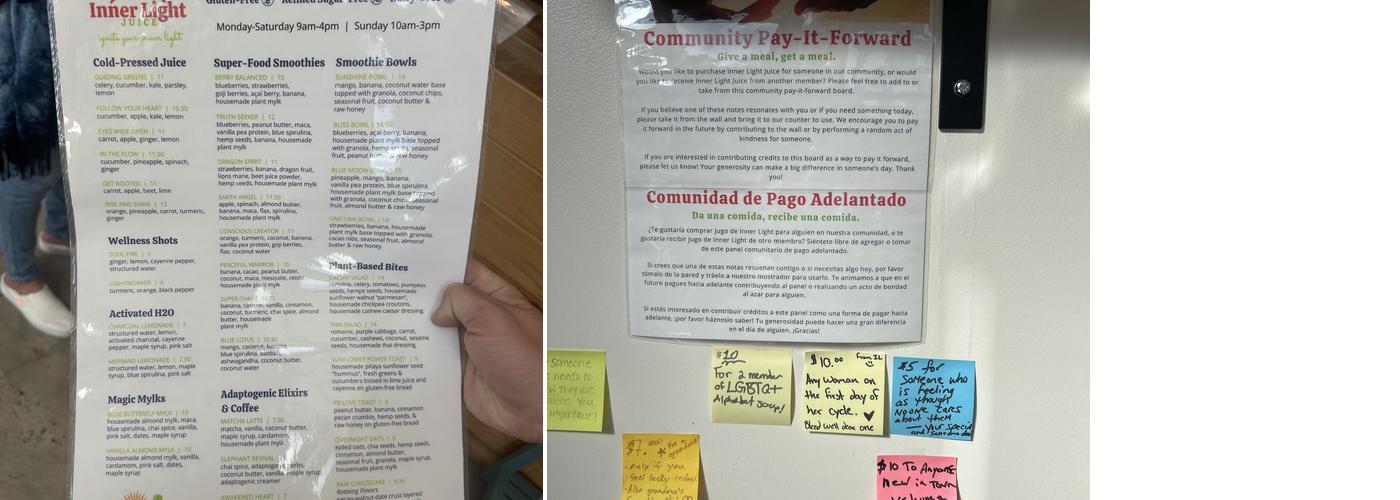 Inner Light
JUICE
ignite your inner light
Gluten-Free Refined Sugar-Free
Monday-Saturday 9am-4pm | Sunday 10am-3pm
Cold-Pressed Juice
GUIDING GREENS | 11
celery, cucumber, kale, parsley,
lemon
FOLLOW YOUR HEART | 10.50
cucumber, apple, kale, lemon
EYES WIDE OPEN | 11
carrot, apple, ginger, lemon
IN THE FLOW | 11.50
cucumber, pineapple, spinach,
ginger
GET ROOTED | 11
carrot, apple, beet, lime
RISE AND SHINE | 12
orange, pineapple, carrot, turmeric,
ginger
Wellness Shots
SOUL FIRE | 5
ginger, lemon, cayenne pepper,
structured water
LIGHTWORKER | 6
turmeric, orange, black pepper
Activated H2O
CHARCOAL LEMONADE | 7
structured water, lemon,
activated charcoal, cayenne
pepper, maple syrup, pink salt
MERMAID LEMONADE | 7.50
structured water, lemon, maple
syrup, blue spirulina, pink salt
Magic Mylks
BLUE BUTTERFLY MYLK | 10
housemade almond mylk, maca,
blue spirulina, chai spice, vanilla,
pink salt, dates, maple syrup
VANILLA ALMOND MYLK | 10
housemade almond mylk, vanilla,
cardamom, pink salt, dates,
maple syrup
Super-Food Smoothies
BERRY BALANCED | 10
blueberries, strawberries,
goji berries, açai berry, banana,
housemade plant mylk
TRUTH SEEKER | 12
blueberries, peanut butter, maca,
vanilla pea protein, blue spirulina,
hemp seeds, banana, housemade
plant mylk
DRAGON SPIRIT | 11
strawberries, banana, dragon fruit,
lions mane, beet juice powder,
hemp seeds, housemade plant mylk
EARTH ANGEL | 11.50
apple, spinach, almond butter,
banana, maca, flax, spirulina,
housemade plant mylk
CONSCIOUS CREATOR | 11
orange, turmeric, coconut, banana,
vanilla pea protein, goji berries,
flax, coconut water
PEACEFUL WARRIOR | 10
banana, cacao, peanut butter,
coconut, maca, mesquite, reishi,
housemade plant mylk
SUPER CHAI
banana, cashew, vanilla, cinnamon,
coconut, turmeric, chai spice, almond
butter, housemade
plant mylk
BLUE LOTUS | 10.50
mango, coconut, banana,
blue spirulina, baobab,
ashwagandha, coconut butter,
coconut water
Adaptogenic Elixirs
& Coffee
MATCHA LATTE | 7.50
matcha, vanilla, coconut butter,
maple syrup, cardamom,
housemade plant mylk
ELEPHANT REVIVAL
chai spice, adaptogenic herbs,
coconut butter, vanilla, maple syrup,
adaptogenic creamer
AWAKENED HEART | 7
Smoothie Bowls
SUNSHINE BOWL | 14
mango, banana, coconut water base
topped with granola, coconut chips,
seasonal fruit, coconut butter &
raw honey
BLISS BOWL | 14.50
blueberries, açai berry, banana,
housemade plant mylk base topped
with granola, hemp seeds, seasonal
fruit, peanut butter & raw honey
BLUE MOON BOWL | 15
pineapple, mango, banana,
vanilla pea protein, blue spirulina,
housemade plant mylk base topped
with granola, coconut chips, seasonal
fruit, almond butter & raw honey
UNICORN BOWL | 14
strawberries, banana, housemade
plant mylk base topped with granola,
cacao nibs, seasonal fruit, almond
butter & raw honey
Plant-Based Bites
CAESAR SALAD | 14
romaine, celery, tomatoes, pumpkin
seeds, hemps seeds, housemade
sunflower walnut "parmesan",
housemade chickpea croutons,
housemade cashew caesar dressing
THAI SALAD | 14
romaine, purple cabbage, carrot,
cucumber, cashews, coconut, sesame
seeds, housemade thai dressing
SUNFLOWER POWER TOAST | 9
housemade pitaya sunflower seed
"hummus", fresh greens &
cucumbers tossed in lime juice and
cayenne on gluten-free bread
PB LOVE TOAST | 8
peanut butter, banana, cinnamon
pecan crumble, hemp seeds, &
raw honey on gluten-free bread
OVERNIGHT OATS | 9
rolled oats, chia seeds, hemp seeds,
cinnamon, almond butter,
seasonal fruit, granola, maple syrup,
housemade plant mylk
RAW CHEEZCAKE | 6.50
Rotating Flavors
pecan-walnut-date crust layered
Community Pay-It-Forward
Give a meal, get a meal.
Would you like to purchase Inner Light Juice for someone in our community, or would
you like to receive Inner Light Juice from another member? Please feel free to add to or
take from this community pay-it-forward board.
If you believe one of these notes resonates with you or if you need something today,
please take it from the wall and bring it to our counter to use. We encourage you to pay
it forward in the future by contributing to the wall or by performing a random act of
kindness for someone.
If you are interested in contributing credits to this board as a way to pay it forward,
please let us know! Your generosity can make a big difference in someone's day. Thank
you!
Comunidad de Pago Adelantado
Da una comida, recibe una comida.
¿Te gustaría comprar jugo de Inner Light para alguien en nuestra comunidad, o te
gustaría recibir jugo de Inner Light de otro miembro? Siéntete libre de agregar o tomar
de este panel comunitario de pago adelantado.
Si crees que una de estas notas resuenan contigo o si necesitas algo hoy, por favor
tómalo de la pared y tráelo a nuestro mostrador para usarlo. Te animamos a que en el
futuro pagues hacia adelante contribuyendo al panel o realizando un acto de bondad
al azar para alguien.
Si estás interesado en contribuir créditos a este panel como una forma de pagar hacia
adelante, ¡por favor háznoslo saber! Tu generosidad puede hacer una gran diferencia
en el día de alguien. ¡Gracias!
someone
needs to
they are
alone. you
important!
$10
For a member
of LGBTQ+
Alphabet Soup!
$10.00 From IL
Any woman on
the first day of
her cycle.
Bleed well dear one
$5 for
Someone who
is feeling
as though
No one cares
about them
— your special
$7.
-easy if you
feel lucky today!
$10 To Anyone
new in Town
Welcome